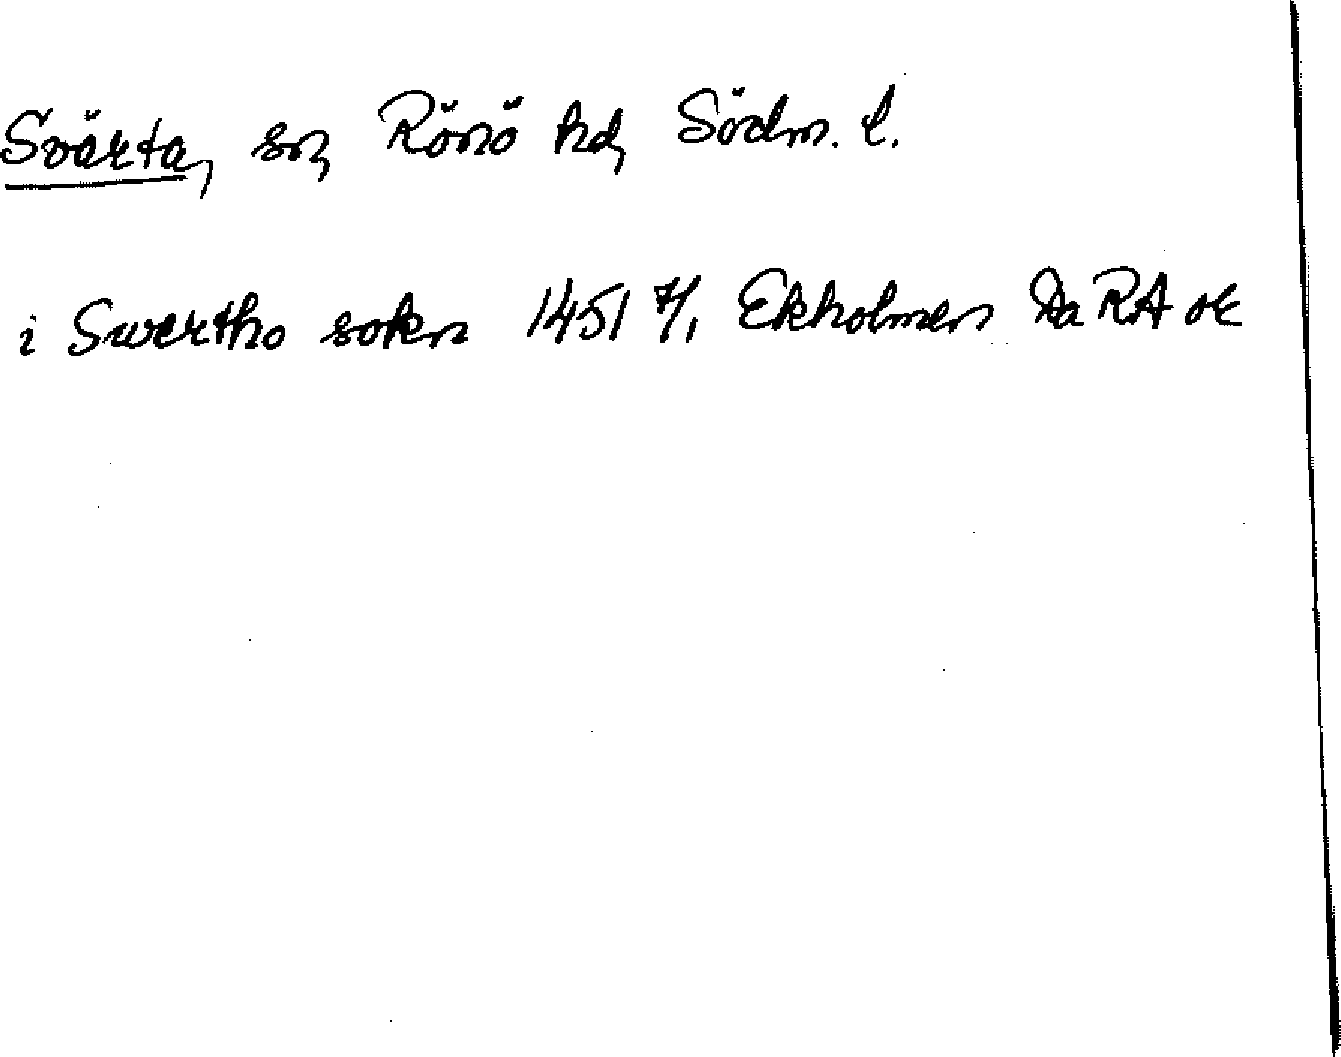 Svärta, sn, Rönö hd, Södm. l.
i Swertho sokn 1451 7/1 Ekholmen Da RA or